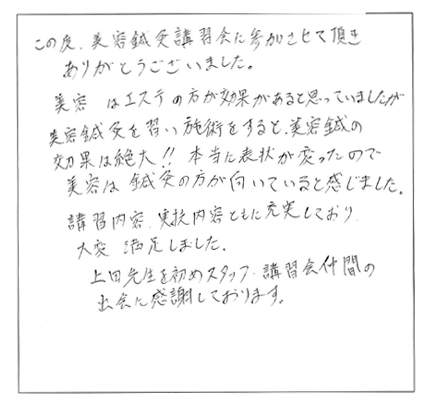 この度、美容鍼灸講習会に参加させて頂き
ありがとうございました。
美容 はエステの方が効果があると思っていましたが
美容鍼灸を習い施術をすると、美容鍼の
効果は絶大!! 本当に表状が変ったので
美容は 鍼灸の方が向いていると感じました。
講習内容、実技内容ともに充実しており、
大変 満足しました。
上田先生を初めスタッフ、講習会仲間の
出会に感謝しております。